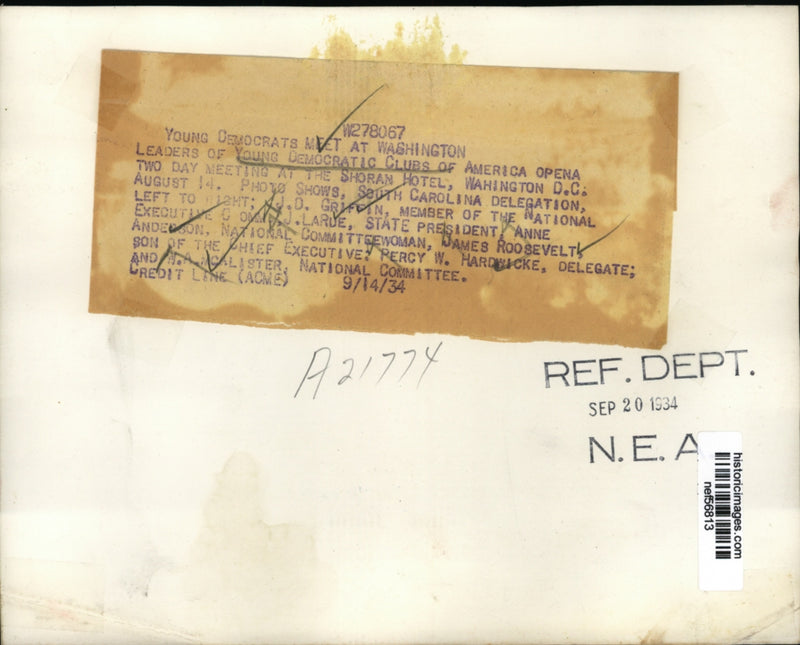 W278067
YOUNG DEMOCRATS MEET AT WASHINGTON
LEADERS OF YOUNG DEMOCRATIC CLUBS OF AMERICA OPENA
TWO DAY MEETING AT THE SHORAN HOTEL, WAHINGTON D.C.
AUGUST 14. PHOTO SHOWS, SOUTH CAROLINA DELEGATION,
LEFT TO RIGHT; J.D. GRIFFIN, MEMBER OF THE NATIONAL
EXECUTIVE COMM. J.LARUE, STATE PRESIDENT, ANNE
ANDERSON, NATIONAL COMMITTEEWOMAN, JAMES ROOSEVELT,
SON OF THE CHIEF EXECUTIVE; PERCY W. HARDWICKE, DELEGATE;
AND MCALISTER, NATIONAL COMMITTEE.
CREDIT LINE (ACME) 9/14/34
A21774
REF. DEPT.
SEP 20 1934
N.E.A
historicimages.com
nef56813